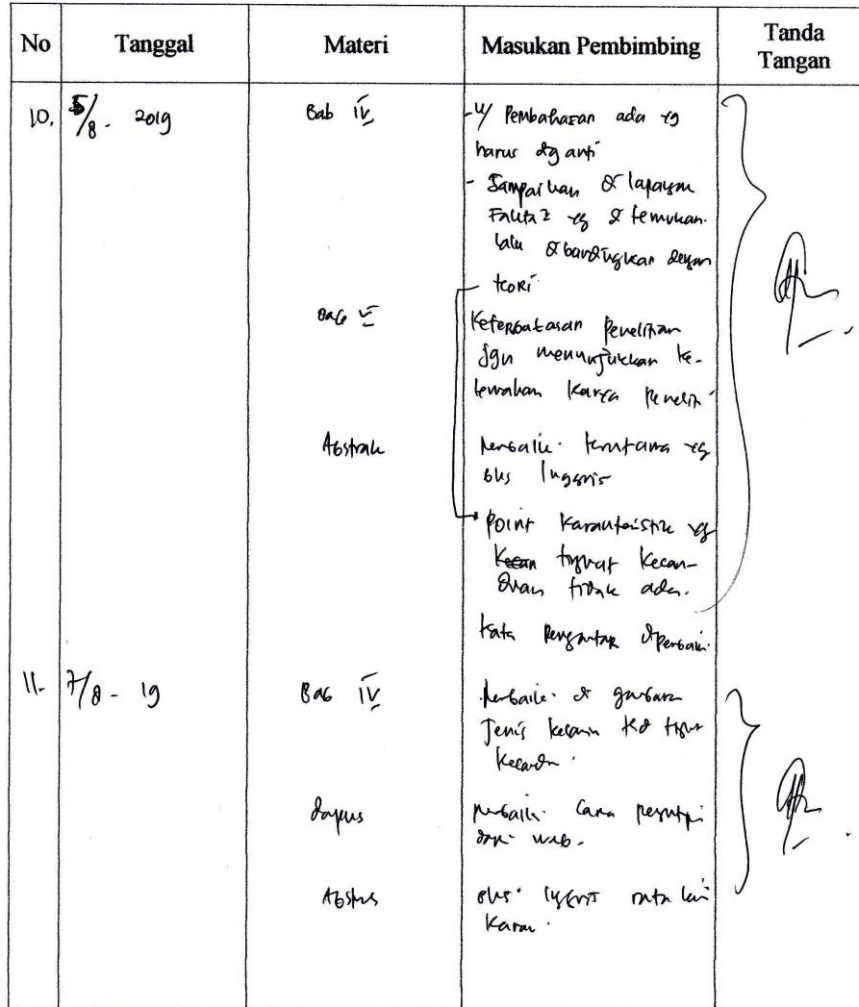 No Tanggal Materi Masukan Pembimbing Tanda Tangan
10. 5/8 - 2019 Bab IV - u/ Pembahasan ada yg
harus dganti
- Sampaikan di lapangan
Fakta2 yg di temukan.
lalu dibandingkan dengan
teori
Bab V Keterbatasan Penelitian
jgn menunjukkan ke-
lemahan karya peneliti
Abstrak perbaiki terutama yg
bhs Inggris
point karakteristik yg
tingkat kecan-
duan tidak ada.
Kata pengantar diperbaiki
11. 7/8 - 19 Bab IV perbaiki di
Jenis kelamin
dapus perbaiki cara
dari web.
bhs